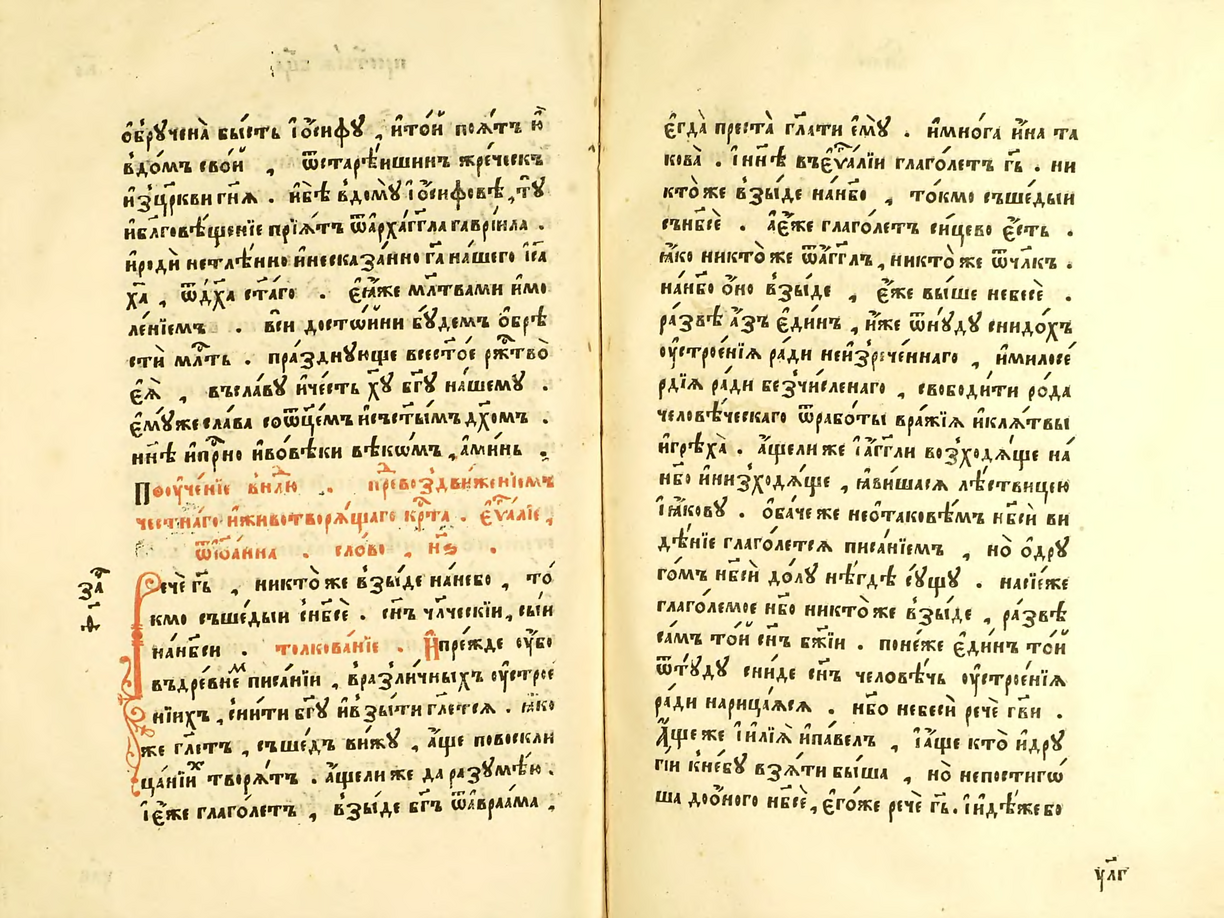 ѻ҆брꙋчена̀ бы́сть і҆ѡ́сифꙋ , и҆то́й поѧ́тъ ю҆̀
вдо́мъ сво́й , ѿстарѣ́ишинъ жре́ческъ
и҆зцр҃кви гн҃ѧ . и҆бѣ̀ вдомꙋ̀ і҆ѡ́сифовѣ , тꙋ̀
и҆бл҃говѣ́щенїе прїѧ́тъ ѿа҆рха́гг҃ла гаврїи́ла .
и҆родѝ нетлѣ́нно и҆несказа́нно га҃ на́шего і҆са҃
ха҃ , ѿдх҃а ст҃а́го . є҆ѧ́же мл҃твами и҆мо
ле́нїемъ . вси досто́йни бꙋ́демъ ѻ҆брѣ
стѝ мл҇ть . пра́зднꙋюще всест҃о́е рж҇тво̀
є҆ѧ̀ , въсла́вꙋ и҆че́сть хꙋ҃ бг҃ꙋ на́шемꙋ .
є҆мꙋ́же сла́ва соѿц҃е́мъ и҆съст҃ы́мъ дх҃омъ .
нн҃ѣ и҆пр҇но и҆во́вѣки вѣкѡ́мъ , а҆ми́нь .
Поꙋче́нїе внлю . превоздвиже́нїемъ
честна́го и҆животворѧ́щаго кр҇та̀ . є҆ѵⷢ҇а́лїе ,
ѿіѡ҆а́нна . сло́во , н҃ѕ .
за҇
д҃
Речѐ гь҃ , никто́же взы́де на́небо , то́
кмо съше́дыи сн҃бсѐ . сн҃ъ чл҃ческїи , сы́и
на́нб҃си . толкова́нїе . И҆пре́жде ᲂу҆́бо
въдре́внем писа́нїи , врази́чныхъ ᲂу҆строе
нїихъ , сни́ти бг҃ꙋ и҆взы́ти гл҃етсѧ . ꙗ҆́ко
же гл҃етъ , съше́дъ ви́жꙋ , а҆́ще повоскли
ца́нїих творѧ́тъ . а҆́щели же да разꙋмѣ́ю .
і҆є҆́же глаго́летъ , взы́де бг҃ъ ѿа҆враа́ма ,
є҆гда̀ преста̀ гл҃ати є҆мꙋ̀ . и҆мно́га и҆́на та
кова̀ . і҆нн҃ѣ въєѵⷢ҇а́лїи глаго́летъ гь҃ . ни
кто́же взы́де на́нб҃о , то́кмо съше́дыи
сънб҃сѐ . а҆є҆́же глаго́летъ си́цево є҆́сть .
ꙗ҆́ко никто́же ѿа҆́гг҃лъ , никто́же ѿчл҃къ .
на́нб҃о ѻ҆́но взы́де , є҆́же вы́ше небесѐ .
ра́звѣ а҆́зъ є҆ди́нъ , и҆́же ѿнꙋ́дꙋ снидо́хъ
ᲂу҆строе́нїѧ ра́ди неи҆зрече́ннаго , и҆милосе́
рдїѧ ра́ди безчи́сленаго , свободи́ти ро́да
человѣ́ческаго ѿрабо́ты вра́жїѧ и҆клѧ́твы
и҆грѣха̀ . а҆́щели же і҆а҆́гг҃ли возходѧ́ще на́
нб҃о и҆низходѧ́ще , ꙗ҆ви́шасѧ лѣ́ствицею
і҆ꙗ́ковꙋ . ѻ҆ба́че же неѻ҆та́ковѣмъ нб҃сѝ ви
дѣ́нїе глаго́летсѧ писа́нїемъ , но̀ ѻ҆дрꙋ
го́мъ нб҃сѝ до́лꙋ нѣ́гдѣ сꙋ́щꙋ . насїе́же
глаго́лемое нб҃о никто́же взы́де , ра́звѣ
са́мъ то́й сн҃ъ бж҃їи . поне́же є҆ди́нъ то́й
ѿтꙋ́дꙋ сни́де сн҃ъ человѣ́чь ᲂу҆строе́нїѧ
ра́ди нарица́ѧсѧ . нб҃о небесѝ речѐ гв҃и .
А҆́ще же і҆илїѧ̀ и҆па́велъ , і҆а҆́ще кто̀ и҆дрꙋ
гі́и кне́бꙋ взѧ́ти бы́ша , но̀ непости́гѡ
ша дооⷩ҇ного нб҃сѐ , є҆го́же речѐ гь҃ . і҆и҆дѣ́же бо
ѵ҃лг